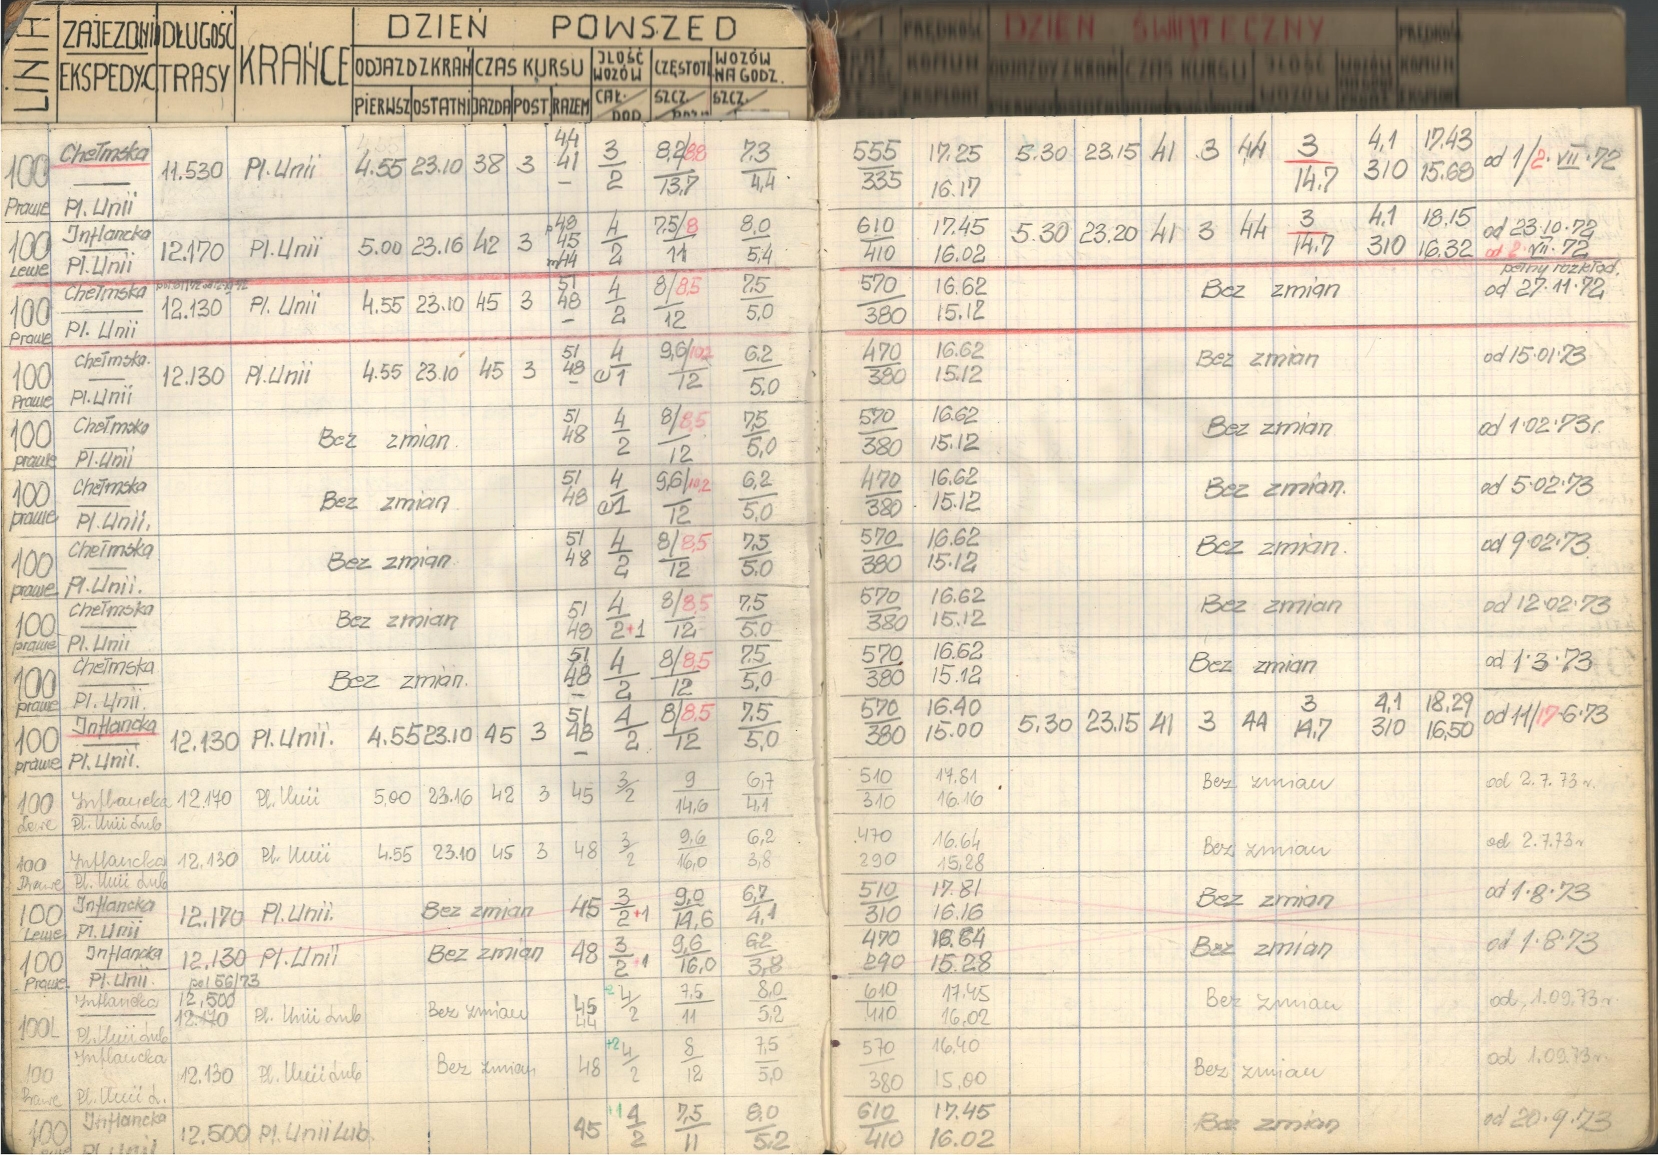 LINIA ZAJEZDNIA EKSPEDYC DŁUGOŚĆ TRASY KRAŃCE DZIEŃ POWSZED
ODJAZD Z KRAŃ CZAS KURSU ILOŚĆ WOZÓW CZĘSTOTL WOZÓW NA GODZ.
PIERWSZ OSTATNI JAZDA POST RAZEM CAŁ. DOD. SZCZ. SZCZ.
PRĘDKOŚĆ KOMUN EKSPLOAT DZIEŃ ŚWIĄTECZNY PRĘDKOŚ KOMUN EKSPLOAT
ODJAZDY Z KRAŃ CZAS KURSU ILOŚĆ WOZÓW
100 Prawe Chełmska Pl. Unii 11.530 Pl. Unii 4.55 23.10 38 3 44 41 – 3/2 8,2/8,8 13,7 7,3 4,4 555 335 17.25 16.17 5.30 23.15 41 3 44 3 14,7 4,1 310 17.43 15.68 od 1/2.VII.72
100 Lewe Inflancka Pl. Unii 12.170 Pl. Unii 5.00 23.16 42 3 48 45 44 4/2 7,5/8 11 8,0 5,4 610 410 17.45 16.02 5.30 23.20 41 3 44 3 14,7 4,1 310 18.15 16.32 od 23.10.72 od 2.VII.72
100 Prawe Chełmska Pl. Unii 12.130 Pl. Unii 4.55 23.10 45 3 51 48 – 4/2 8/8,5 12 7,5 5,0 570 380 16.62 15.12 Bez zmian pełny rozkład. od 27.11.72
100 Prawe Chełmska. Pl. Unii 12.130 Pl. Unii 4.55 23.10 45 3 51 48 – 4/1 9,6/10,2 12 6,2 5,0 470 380 16.62 15.12 Bez zmian od 15.01.73
100 prawe Chełmska Pl. Unii Bez zmian. 51 48 4/2 8/8,5 12 7,5 5,0 570 380 16.62 15.12 Bez zmian od 1.02.73r.
100 prawe Chełmska Pl. Unii. Bez zmian 51 48 4/1 9,6/10,2 12 6,2 5,0 470 380 16.62 15.12 Bez zmian. od 5.02.73
100 prawe Chełmska Pl. Unii. Bez zmian. 51 48 4/2 8/8,5 12 7,5 5,0 570 380 16.62 15.12 Bez zmian. od 9.02.73
100 prawe Chełmska Pl. Unii Bez zmian 51 48 4/2+1 8/8,5 12 7,5 5.0 570 380 16.62 15.12 Bez zmian od 12.02.73
100 prawe Chełmska Pl. Unii. Bez zmian. 51 48 – 4/2 8/8,5 12 7,5 5,0 570 380 16.62 15.12 Bez zmian od 1.3.73
100 prawe Inflancka Pl. Unii. 12.130 Pl. Unii. 4.55 23.10 45 3 51 48 – 4/2 8/8,5 12 7,5 5,0 570 380 16.40 15.00 5.30 23.15 41 3 44 3 14,7 4,1 310 18,29 16,50 od 11/17.6.73
100 Lewe Inflancka Pl. Unii Lub 12.170 Pl. Unii 5,00 23.16 42 3 45 3/2 9 14,6 6,7 4,1 510 310 17,81 16.16 Bez zmian od 2.7.73r.
100 Prawe Inflancka Pl. Unii Lub 12.130 Pl. Unii 4.55 23.10 45 3 48 3/2 9,6 16,0 6,2 3,8 470 290 16.64 15,28 Bez zmian od 2.7.73r
100 Lewe Inflancka Pl. Unii 12.170 Pl. Unii. Bez zmian 45 3/2+1 9,0 14,6 6,7 4,1 510 310 17.81 16.16 Bez zmian od 1.8.73
100 Prawe Inflancka Pl. Unii. 12.130 Pl. Unii Bez zmian 48 3/2+1 9,6 16,0 6,2 3,8 470 290 16.64 15.28 Bez zmian od 1.8.73
100L Inflancka Pl. Unii Lub 12,500 12.170 Pl. Unii Lub Bez zmian 45 44 4/2 7,5 11 8,0 5,2 610 410 17.45 16.02 Bez zmian od 1.09.73r.
100 Prawe Inflancka Pl. Unii L. 12.130 Pl. Unii Lub Bez zmian 48 +2 4/2 8 12 7,5 5,0 570 380 16,40 15,00 Bez zmian od 1.09.73r.
100 Inflancka Pl. Unii 12.500 Pl. Unii Lub. 45 +1 4/2 7,5 11 8,0 5,2 610 410 17.45 16.02 Bez zmian od 20.9.73